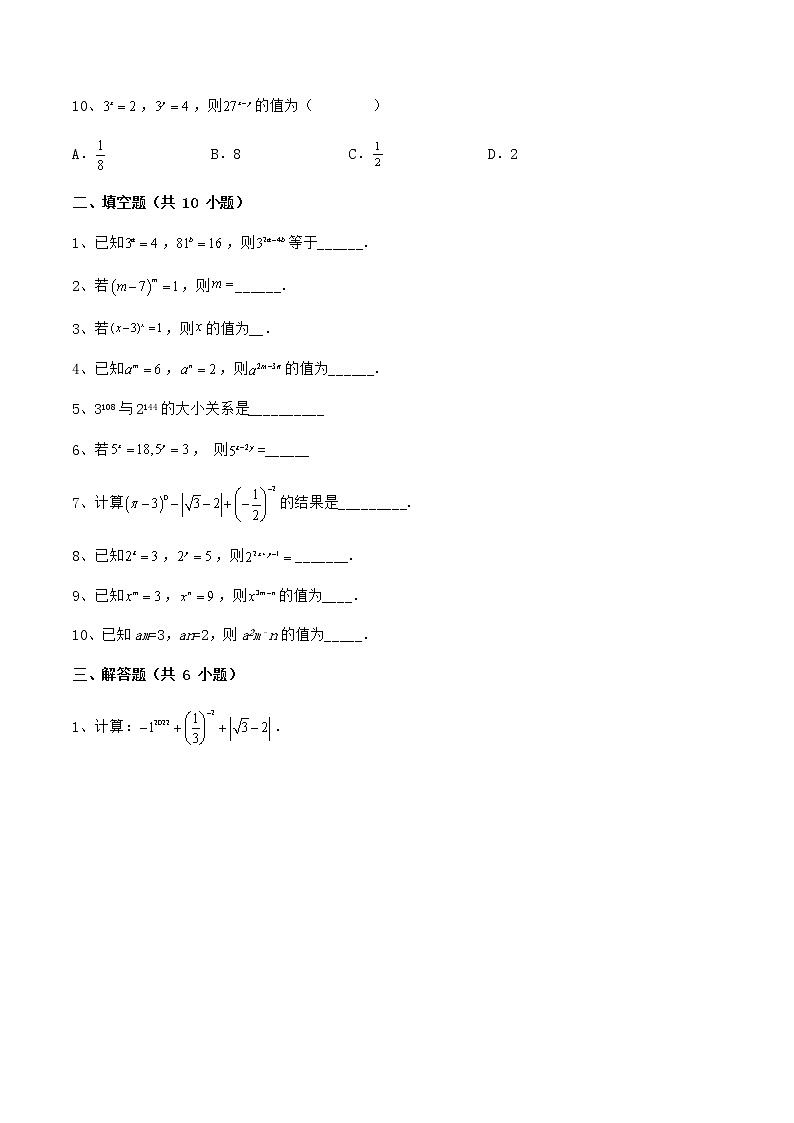 10、3ˣ = 2，3ʸ = 4，则27ˣ⁻ʸ的值为（　　）
A．1/8 B．8 C．1/2 D．2
二、填空题（共 10 小题）
1、已知3ᵃ = 4，81ᵇ = 16，则3²ᵃ⁻⁴ᵇ等于______．
2、若(m−7)ᵐ = 1，则m = ______．
3、若(x−3)ˣ = 1，则x的值为__．
4、已知aᵐ = 6，aⁿ = 2，则a²ᵐ⁻³ⁿ的值为______．
5、3¹⁰⁸与2¹⁴⁴的大小关系是__________
6、若5ˣ = 18,5ʸ = 3， 则5ˣ⁻²ʸ=______
7、计算(π−3)⁰−|√3−2|+(−1/2)⁻²的结果是_________．
8、已知2ˣ = 3，2ʸ = 5，则2²ˣ⁺ʸ⁻¹ = _______．
9、已知xᵐ = 3，xⁿ = 9，则x³ᵐ⁻ⁿ的值为____．
10、已知am=3，an=2，则a²m⁻n的值为_____．
三、解答题（共 6 小题）
1、计算：−1²⁰²²+(1/3)⁻²+|√3−2|．